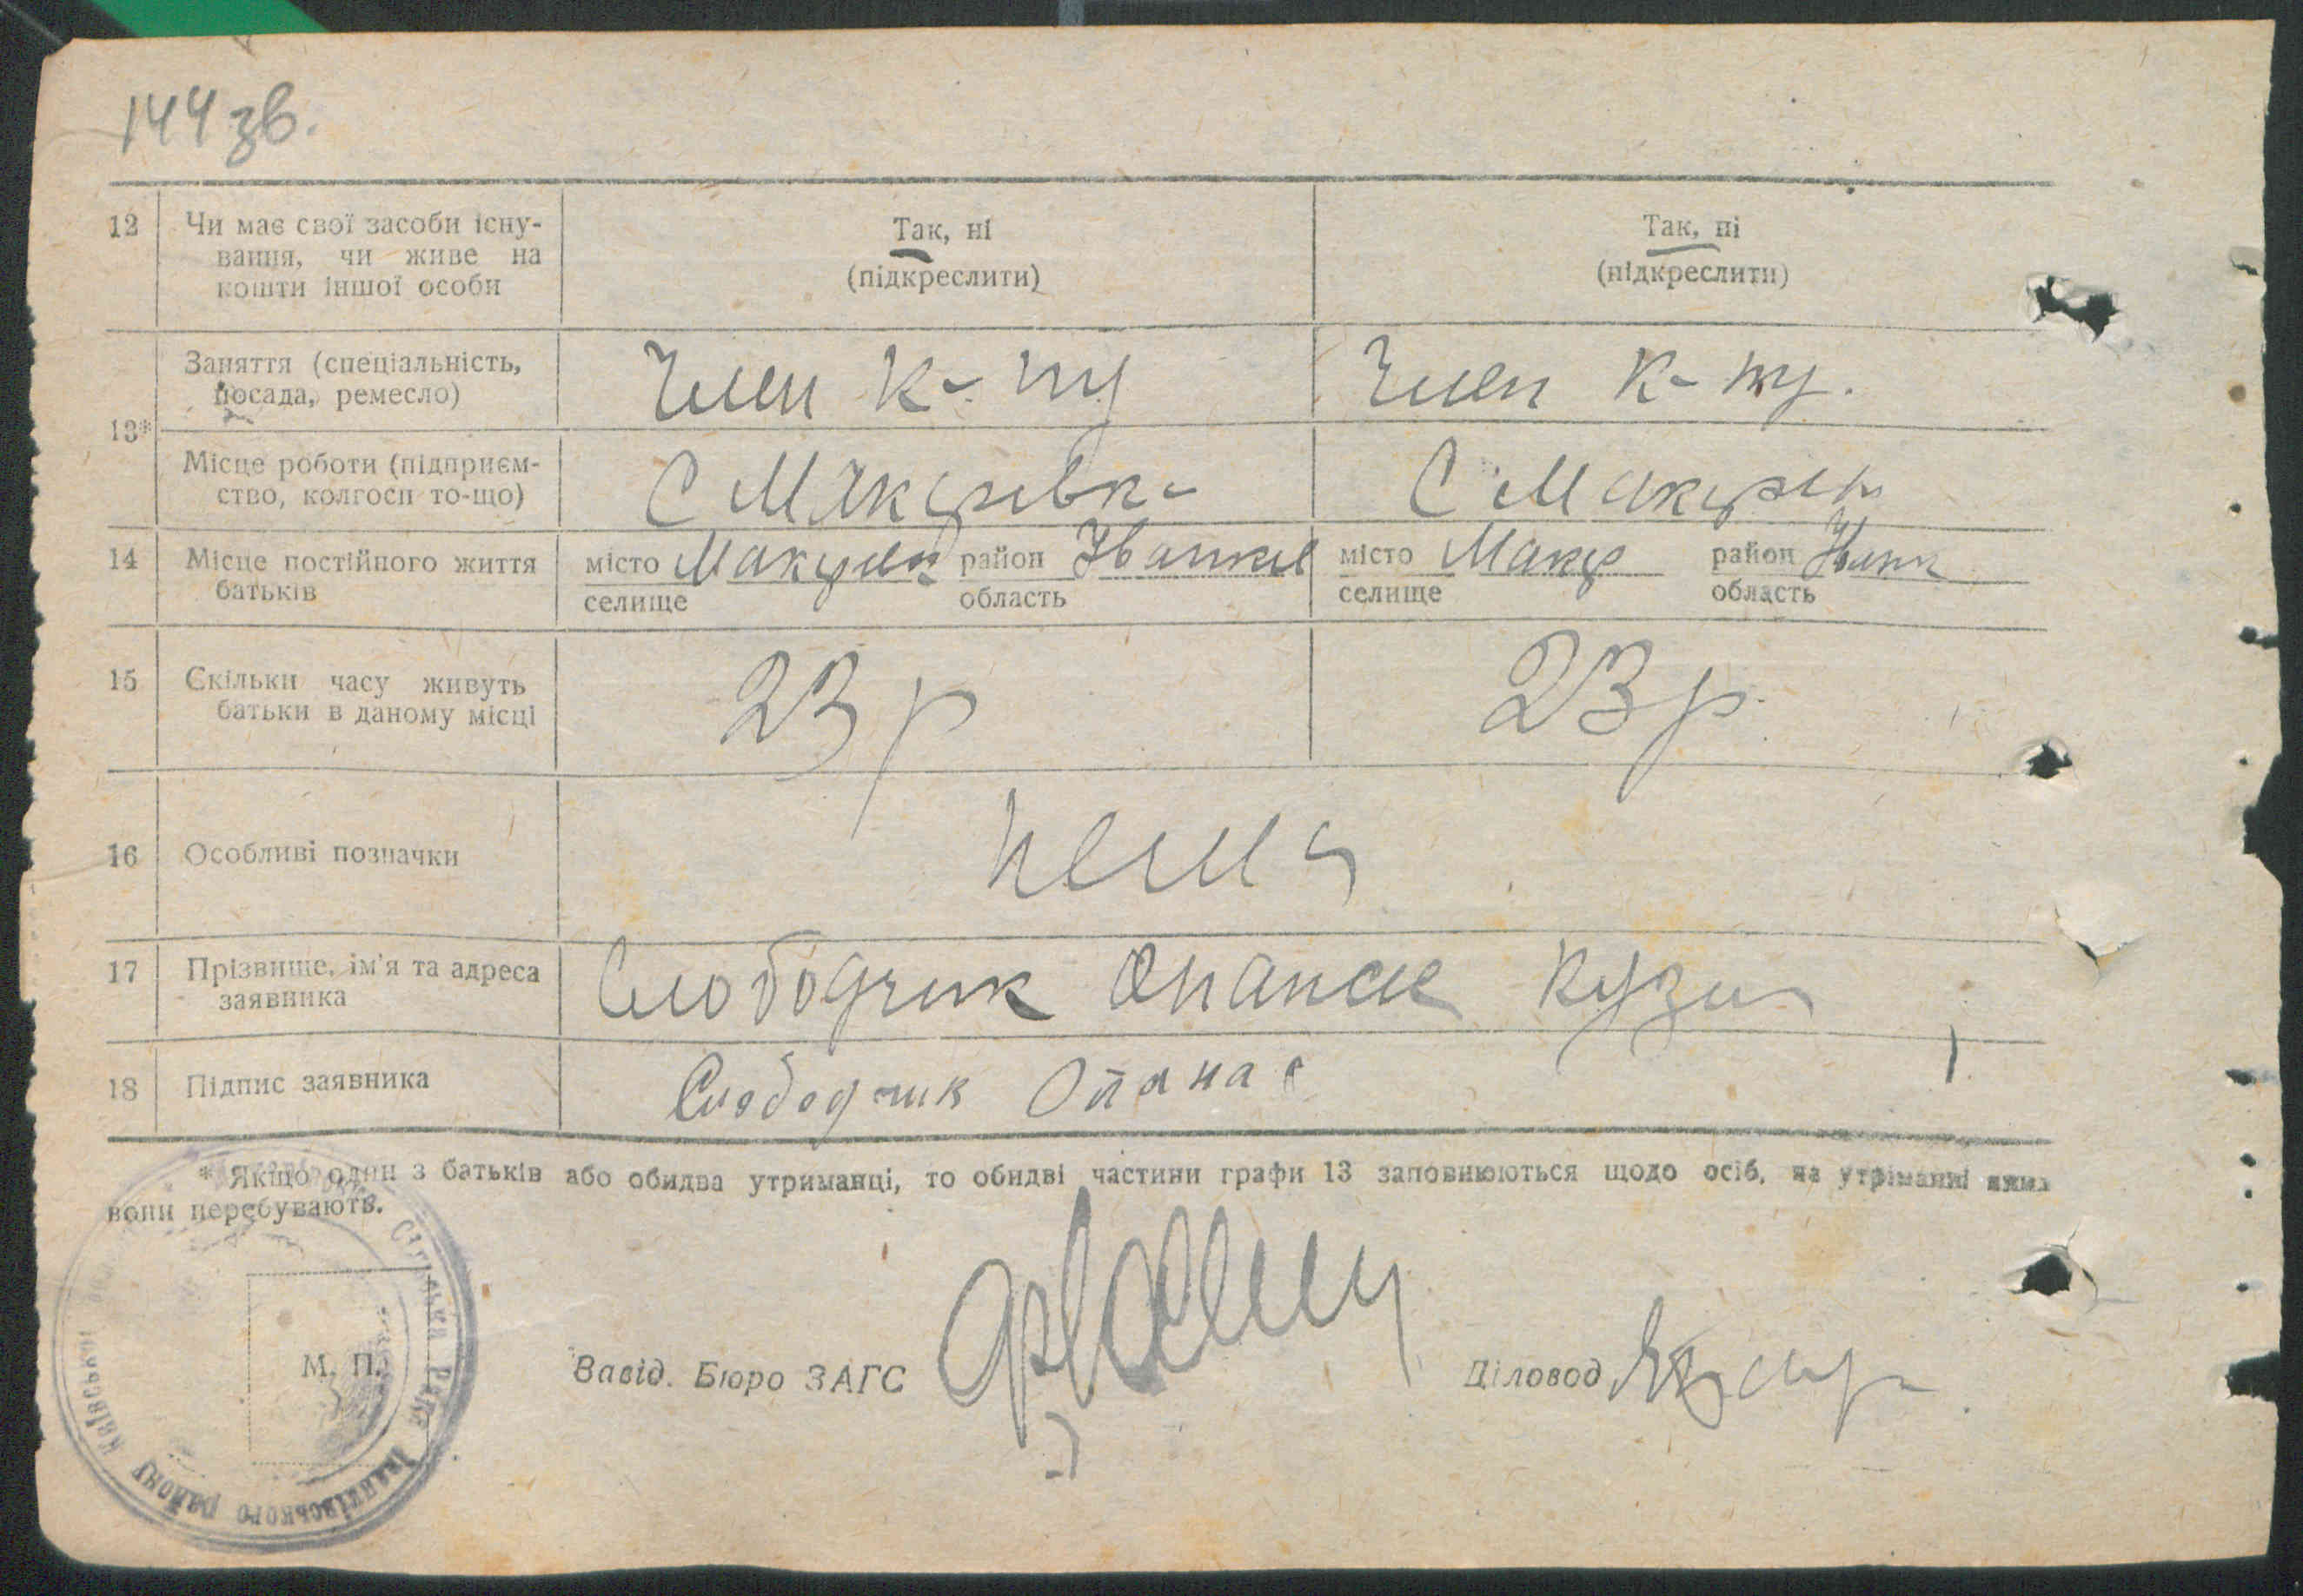 144 зв.
12 Чи має свої засоби існу-
вання, чи живе на
кошти іншої особи
Так, ні
(підкреслити)
Так, ні
(підкреслити)
13*
Заняття (спеціальність,
посада, ремесло)
Член к-пу
Член к-пу.
Місце роботи (підприєм-
ство, колгосп то-що)
С
С
14 Місце постійного життя
батьків
місто район
селище область
місто Макар район
селище область
15 Скільки часу живуть
батьки в даному місці
23 р
23 р.
16 Особливі позначки
нема
17 Прізвище, ім'я та адреса
заявника
Слободчик Опанас
18 Підпис заявника
Слободчик Опанас
* Якщо один з батьків або обидва утриманці, то обидві частини графи 13 заповнюються щодо осіб, на утриманні яких
вони перебувають.
Сільська Рада Іванківського району Київської
М. П.
Завід. Бюро ЗАГС
Діловод